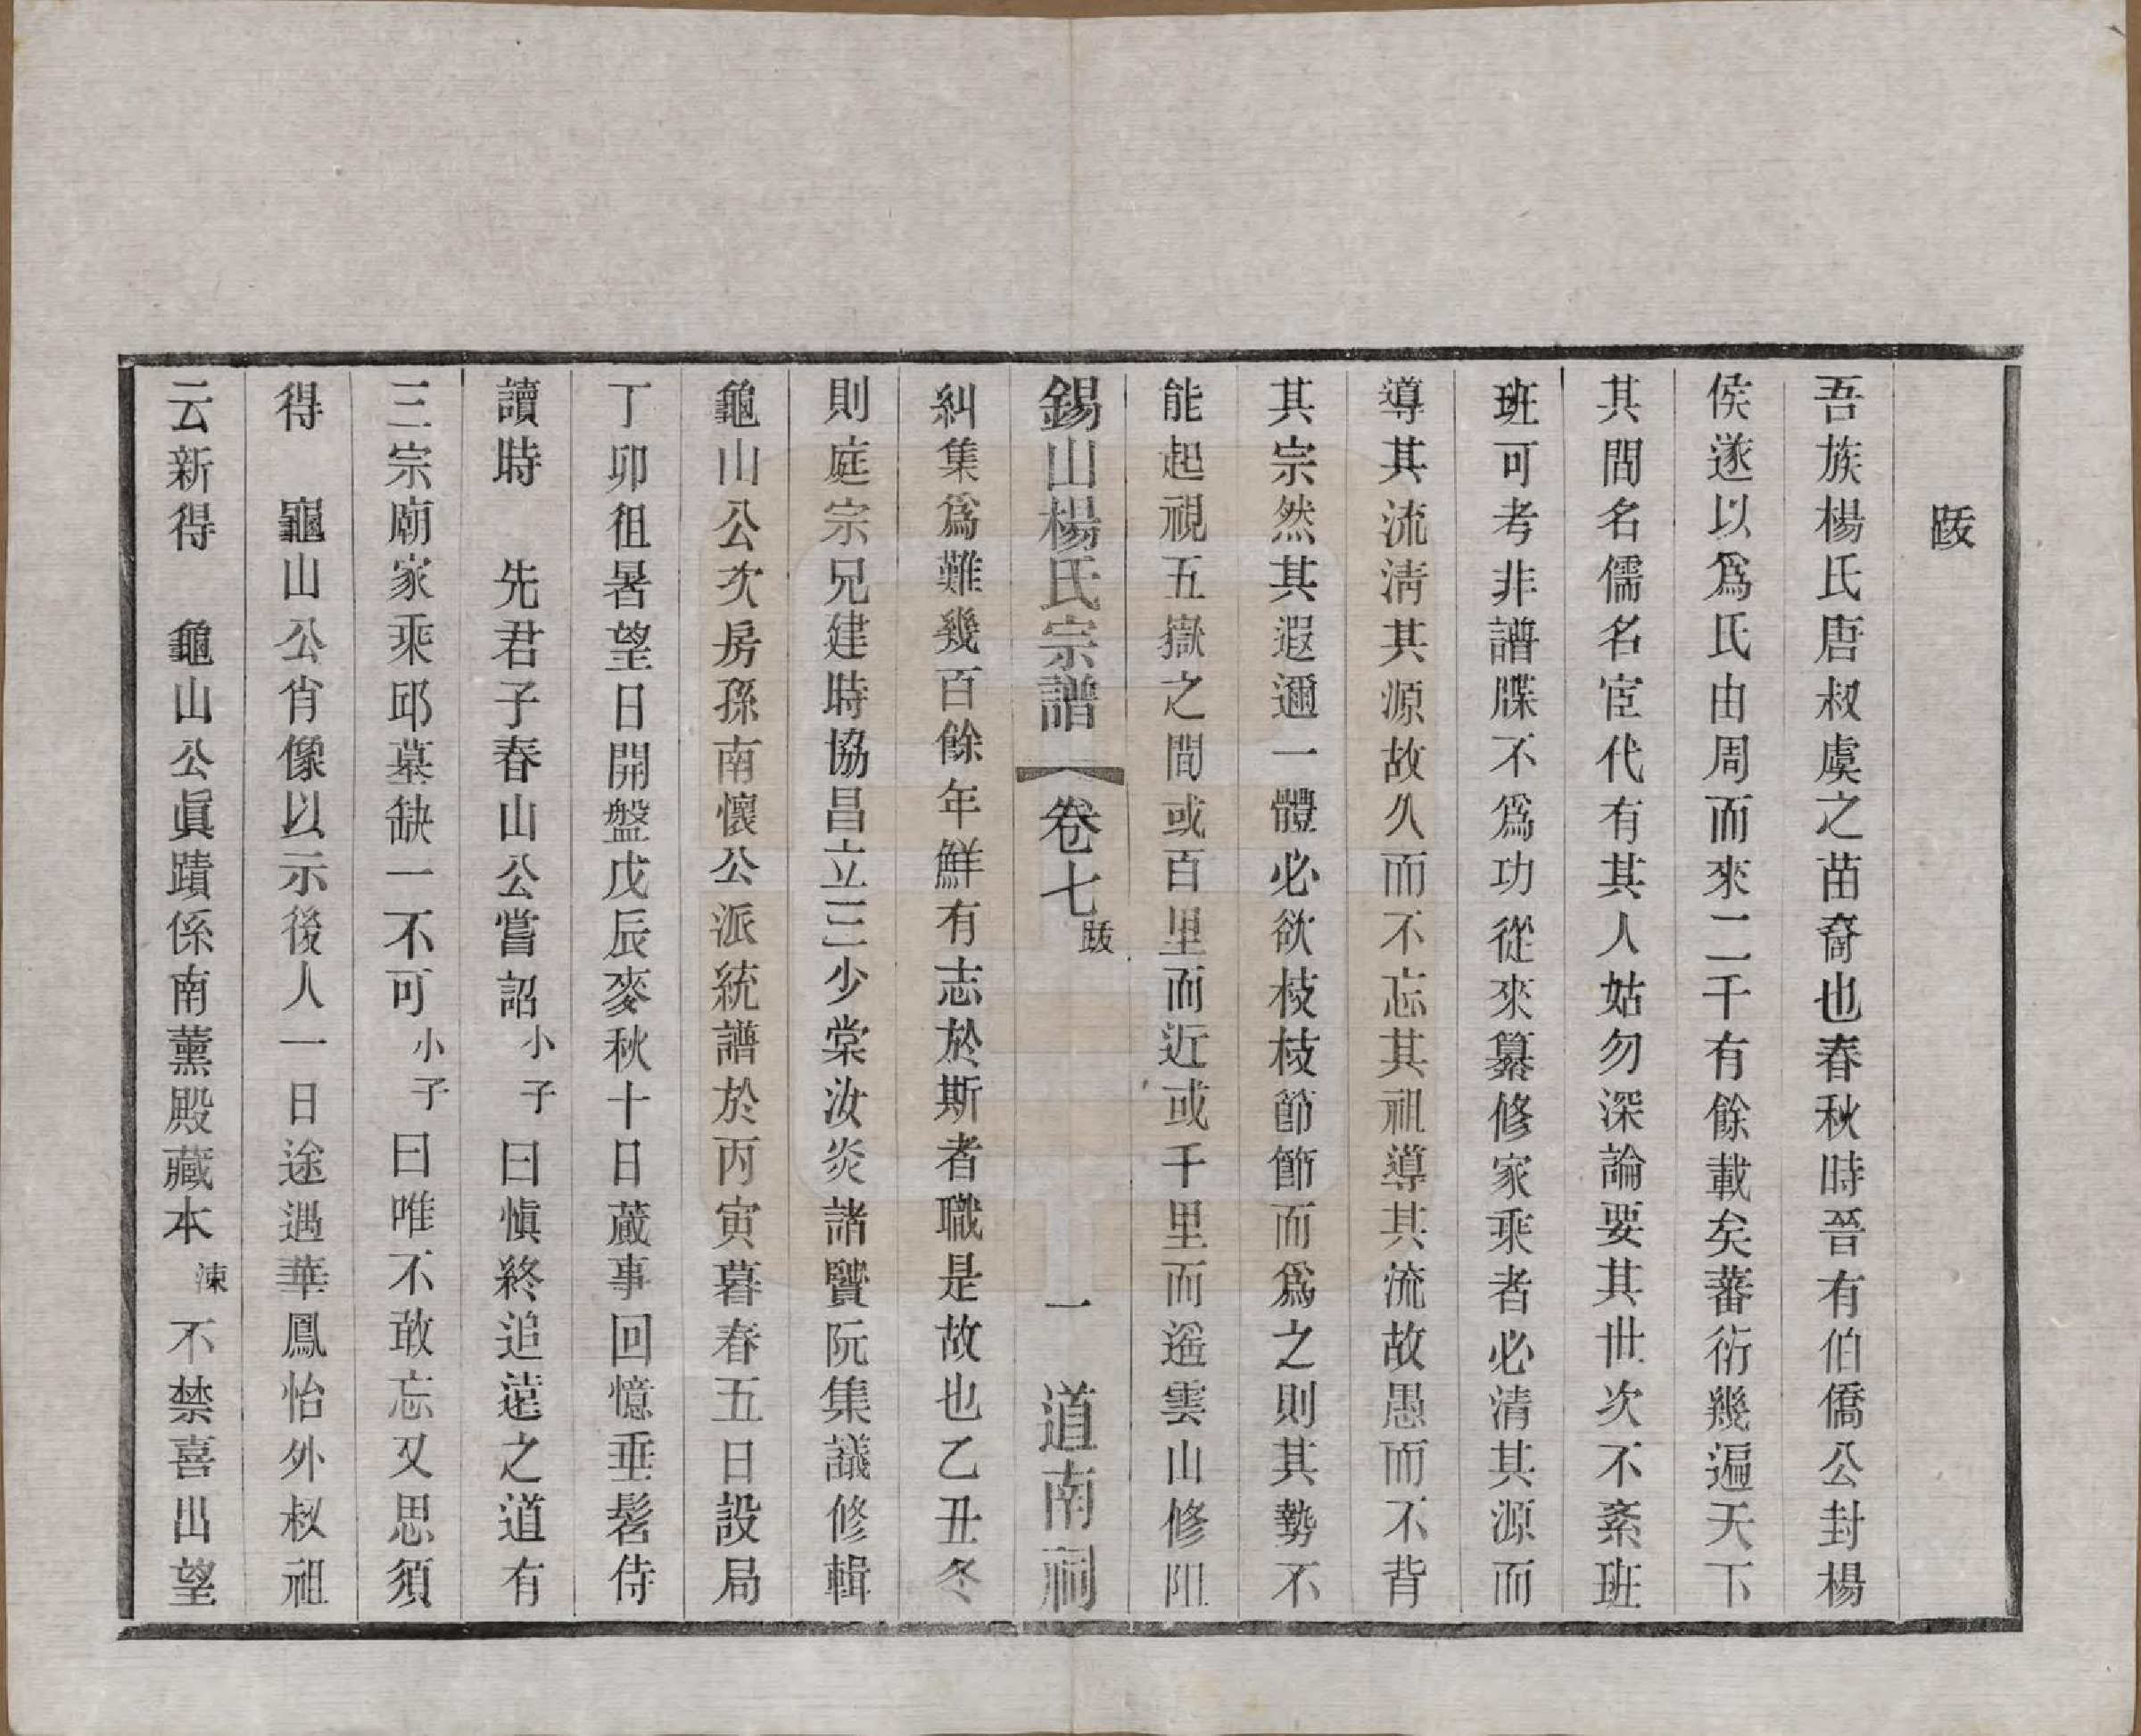 跋
吾族楊氏唐叔虞之苗裔也春秋時晉有伯僑公封楊
侯遂以爲氏由周而來二千有餘載矣蕃衍幾遍天下
其間名儒名宦代有其人姑勿深論要其世次不紊班
班可考非譜牒不爲功從來纂修家乘者必清其源而
導其流淸其源故久而不忘其祖導其流故愚而不背
其宗然其遐邇一體必欲枝枝節節而爲之則其勢不
能起視五嶽之間或百里而近或千里而遥雲山修阻
錫山楊氏宗譜 卷七 跋 一 道南祠
糾集爲難幾百餘年鮮有志於斯者職是故也乙丑冬
則庭宗兄建時協昌立三少棠汝炎諸賢阮集議修輯
龜山公次房孫南懷公派統譜於丙寅暮春五日設局
丁卯徂暑望日開盤戊辰麥秋十日蕆事回憶垂髫侍
讀時 先君子春山公嘗詔小子曰愼終追遠之道有
三宗廟家乘邱墓缺一不可小子曰唯不敢忘又思須
得 龜山公肖像以示後人一日途遇華鳳怡外叔祖
云新得 龜山公眞蹟係南薰殿藏本涷不禁喜出望